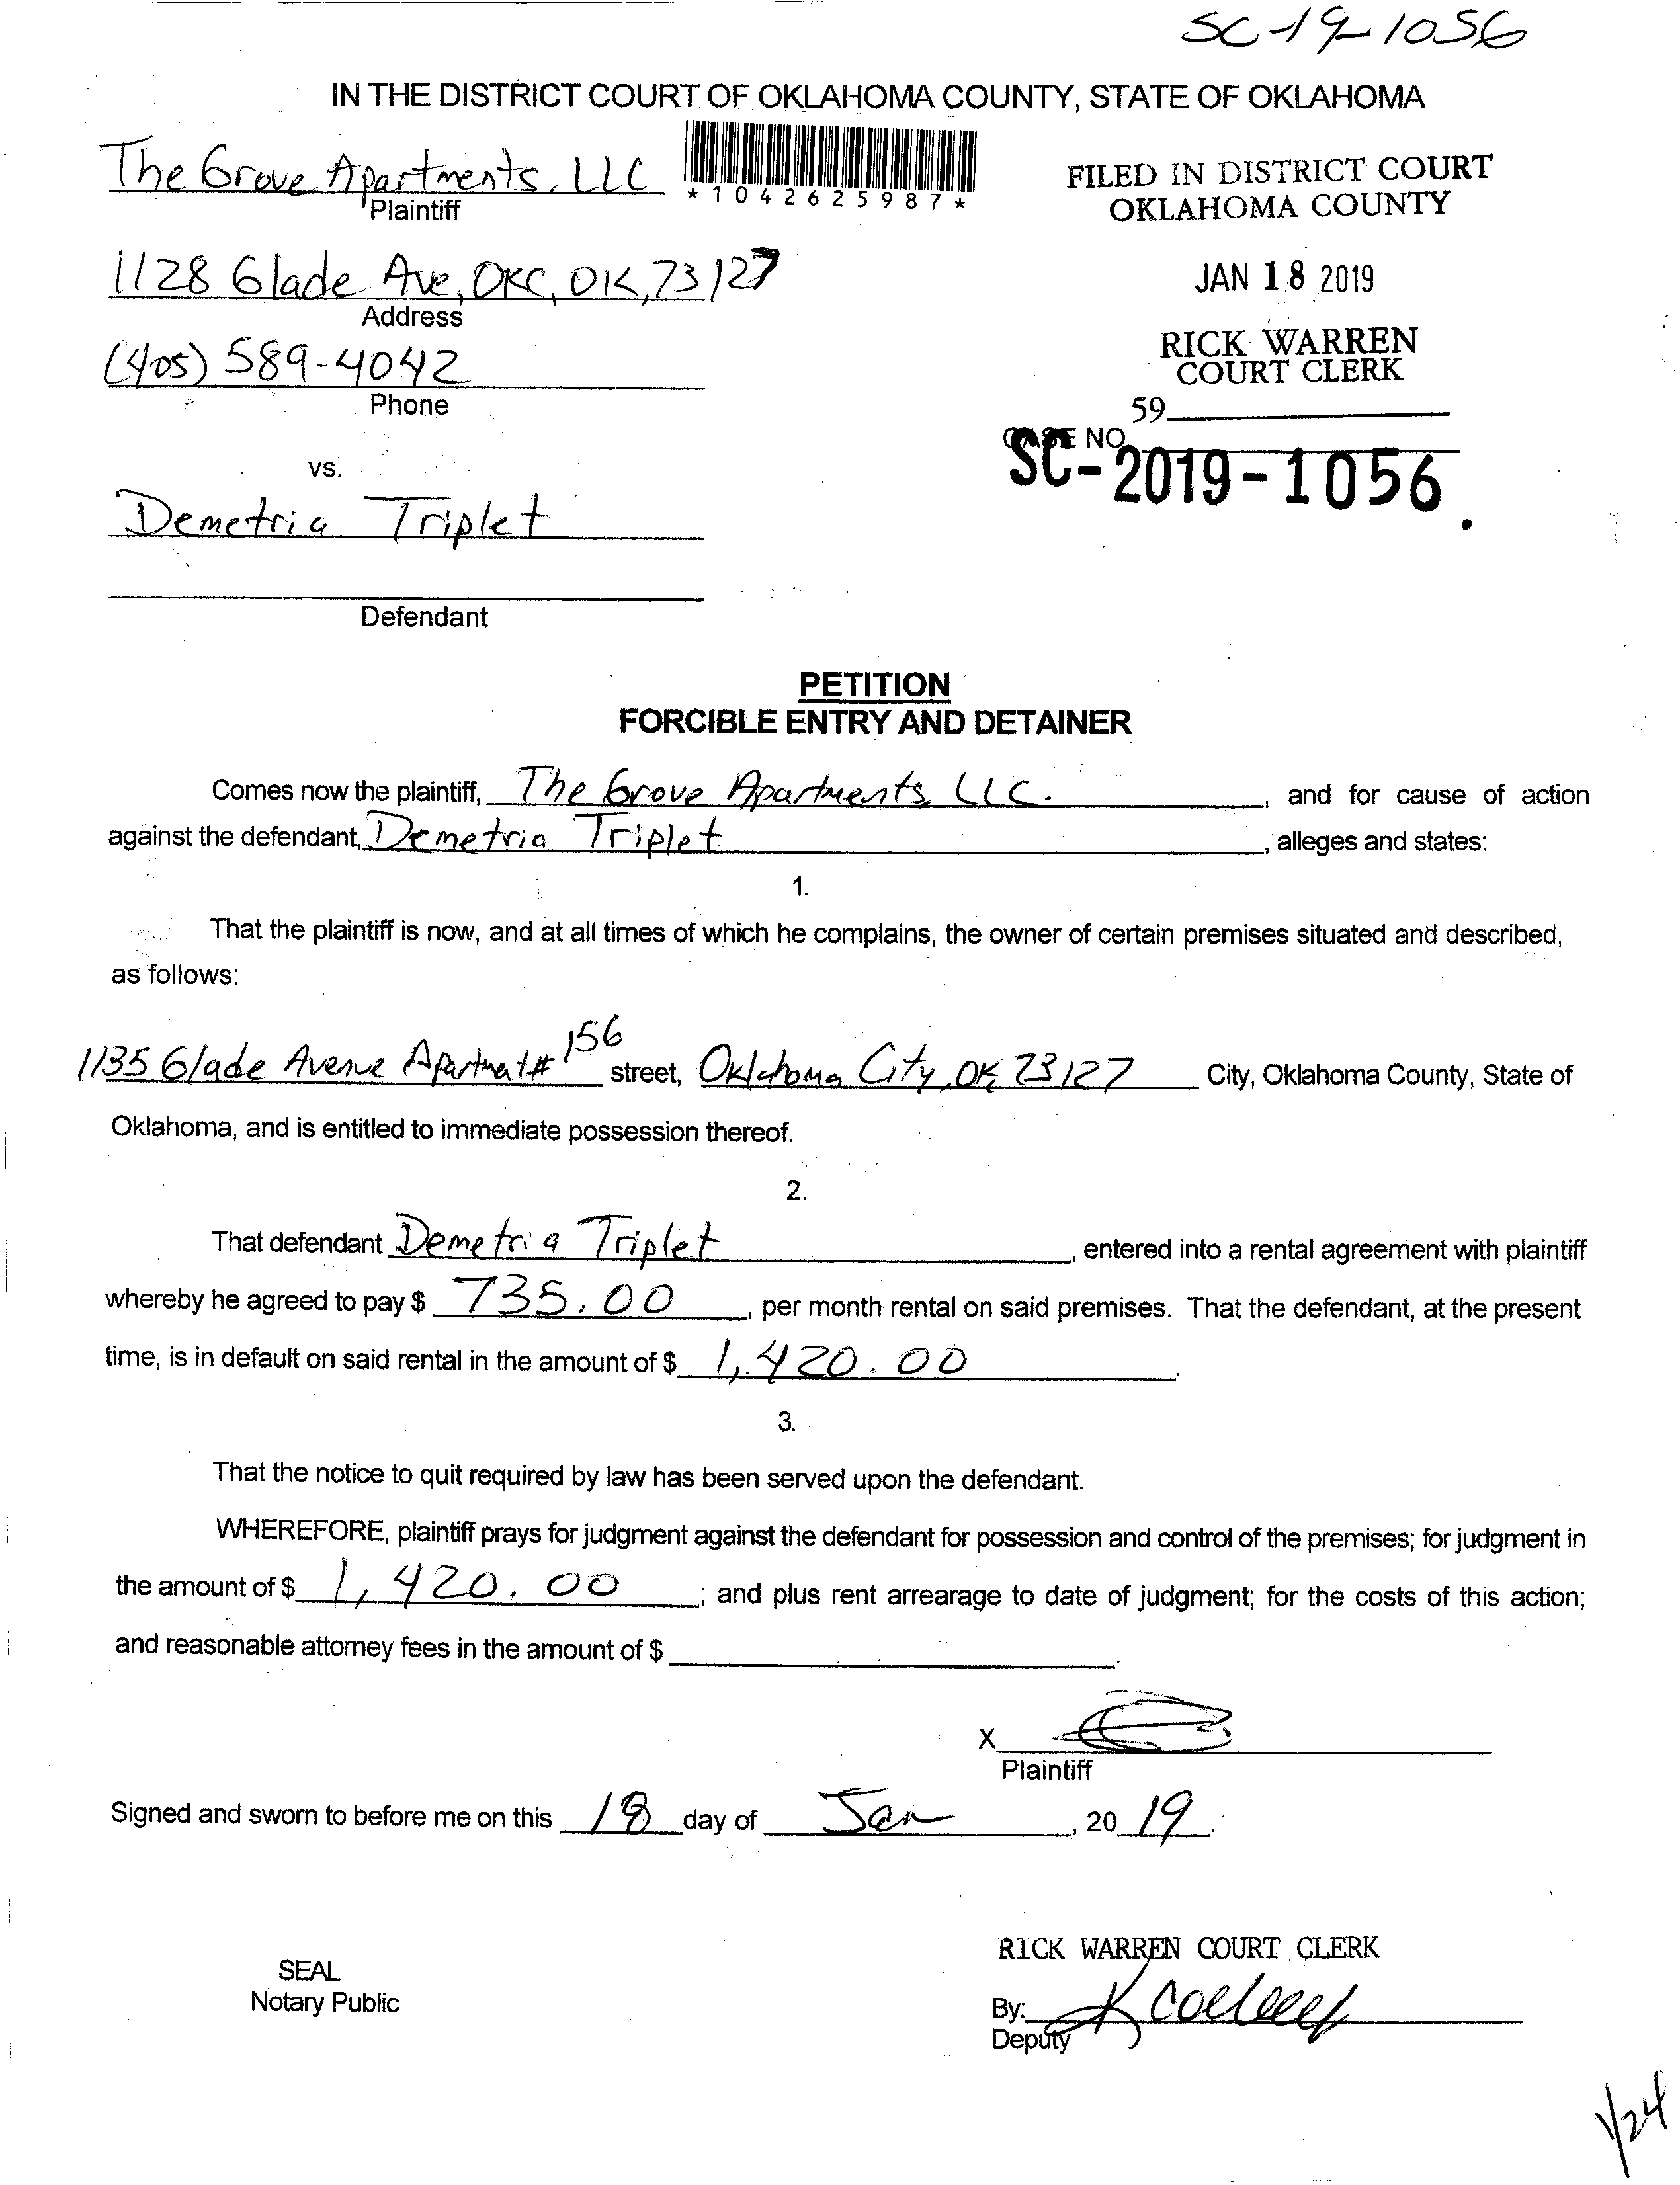 SC-19-1056
IN THE DISTRICT COURT OF OKLAHOMA COUNTY, STATE OF OKLAHOMA
The Grove Apartments, LLC
Plaintiff
*1042625987*
FILED IN DISTRICT COURT
OKLAHOMA COUNTY
1128 Glade Ave, OKC, OK, 73127
Address
JAN 18 2019
(405) 589-4042
Phone
RICK WARREN
COURT CLERK
59
CASE NO.
SC-2019-1056.
vs.
Demetria Triplet
Defendant
PETITION
FORCIBLE ENTRY AND DETAINER
Comes now the plaintiff, The Grove Apartments, LLC. , and for cause of action
against the defendant, Demetria Triplet , alleges and states:
1.
That the plaintiff is now, and at all times of which he complains, the owner of certain premises situated and described,
as follows:
1135 Glade Avenue Apartment# 156 street, Oklahoma City, OK 73127 City, Oklahoma County, State of
Oklahoma, and is entitled to immediate possession thereof.
2.
That defendant Demetria Triplet , entered into a rental agreement with plaintiff
whereby he agreed to pay $ 735.00 , per month rental on said premises. That the defendant, at the present
time, is in default on said rental in the amount of $ 1,420.00 .
3.
That the notice to quit required by law has been served upon the defendant.
WHEREFORE, plaintiff prays for judgment against the defendant for possession and control of the premises; for judgment in
the amount of $ 1,420.00 ; and plus rent arrearage to date of judgment; for the costs of this action;
and reasonable attorney fees in the amount of $ .
X
Plaintiff
Signed and sworn to before me on this 18 day of Jan , 2019.
SEAL
Notary Public
RICK WARREN COURT CLERK
By:
Deputy
1/24